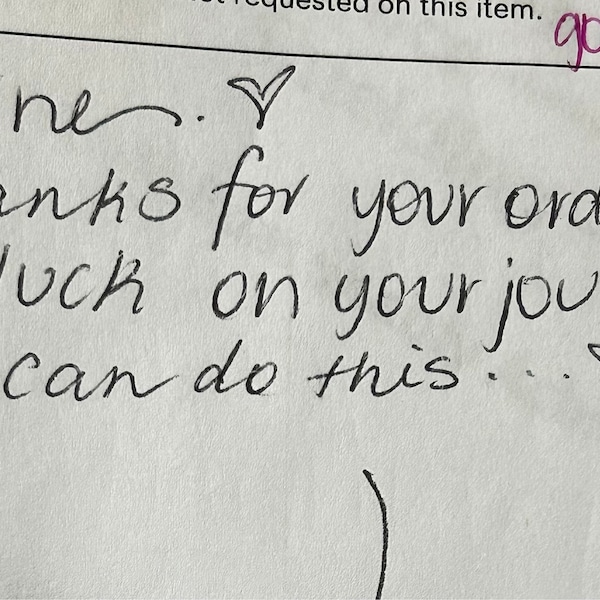 requested on this item.
go
ne.
anks for your ord
luck on your jou
can do this...